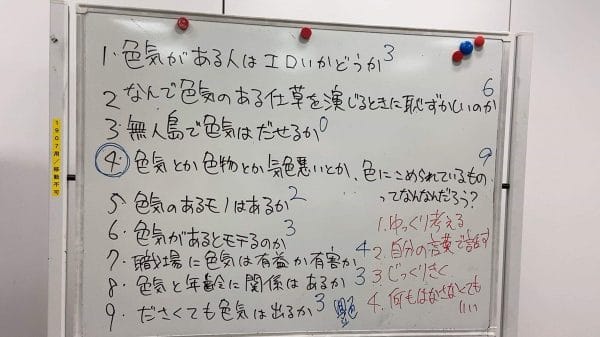 1. 色気がある人はエロいかどうか 3
2 なんで色気のある仕草を演じるときに恥ずかしいのか 6
3. 無人島で色気はだせるか 0
④. 色気とか色物とか気色悪いとか、色にこめられているもの 9
ってなんなんだろう?
5 色気のあるモノはあるか 2
6. 色気があるとモテるのか 3
7. 職場に色気は有益か有害か 4
8. 色気と年齢に関係はあるか 3
9. ださくても色気は出るか 3
1. ゆっくり考える
2. 自分の言葉で話す
3. じっくりきく
4. 何もはなさなくても
いい
1907用/移動不可